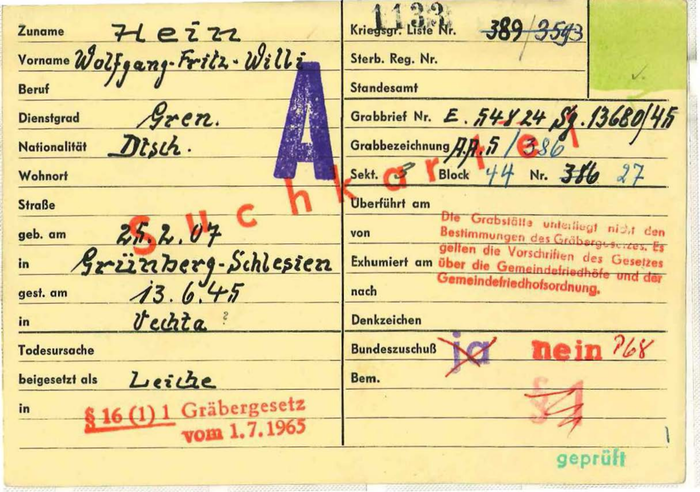 1133
Zuname Hein
Vorname Wolfgang-Fritz-Willi
Beruf
Dienstgrad Gren.
Nationalität Dtsch.
Wohnort
Straße
geb. am 25.2.07
in Grünberg-Schlesien
gest. am 13.6.45
in Vechta ?
Todesursache
beigesetzt als Leiche
in
§ 16 (1) 1 Gräbergesetz
vom 1.7.1965
A
Suchkartei
Kriegsgr. Liste Nr. 389/3593
Sterb. Reg. Nr.
Standesamt
Grabbrief Nr. E. 54824 Sg. 13680/45
Grabbezeichnung A.A.5/386
Sekt. 3 Block 44 Nr. 386 27
Überführt am
von
Exhumiert am
nach
Die Grabstätte unterliegt nicht den
Bestimmungen des Gräbergesetzes. Es
gelten die Vorschriften des Gesetzes
über die Gemeindefriedhöfe und der
Gemeindefriedhofsordnung.
Denkzeichen
Bundeszuschuß ja nein
Bem.
§ 1
geprüft